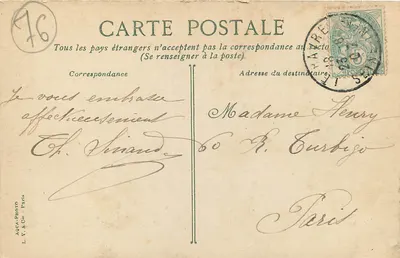 76
CARTE POSTALE
Tous les pays étrangers n'acceptent pas la correspondance au recto
(Se renseigner à la poste).
Correspondance
Adresse du destinataire
LE HAVRE
Je vous embrasse
affectueusement
Th.
Madame Henry
60 R. Turbigo
Paris
AQUA-PHOTO
L. V. & Cie Paris